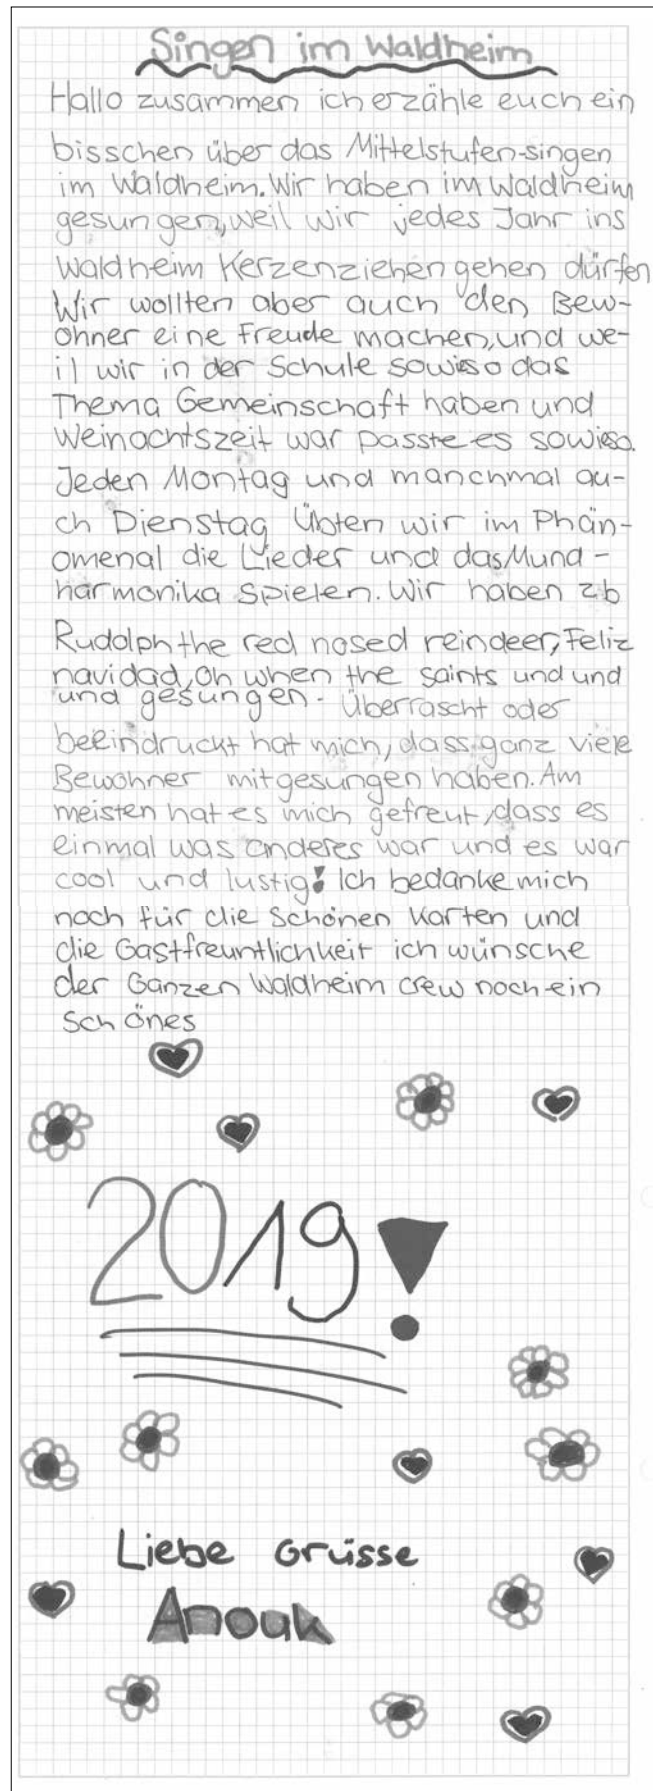 Singen im Waldheim
Hallo zusammen ich erzähle euch ein
bisschen über das Mittelstufen-singen
im Waldheim. Wir haben im Waldheim
gesungen, weil wir jedes Jahr ins
Waldheim Kerzenziehen gehen dürfen
Wir wollten aber auch den Bew-
ohner eine Freude machen, und we-
il wir in der Schule sowieso das
Thema Gemeinschaft haben und
Weinachtszeit war passte es sowieso.
Jeden Montag und manchmal au-
ch Dienstag Übten wir im Phän-
omenal die Lieder und das Mund-
harmonika spielen. Wir haben zb
Rudolph the red nosed reindeer, Feliz
navidad, Oh when the saints und und
und gesungen. Überrascht oder
beeindruckt hat mich, dass ganz viele
Bewohner mitgesungen haben. Am
meisten hat es mich gefreut, dass es
einmal was anderes war und es war
cool und lustig! Ich bedanke mich
noch für die Schönen Karten und
die Gastfreuntlichkeit ich wünsche
der Ganzen Waldheim crew noch ein
Schönes
2019!
Liebe Grüsse
Anouk